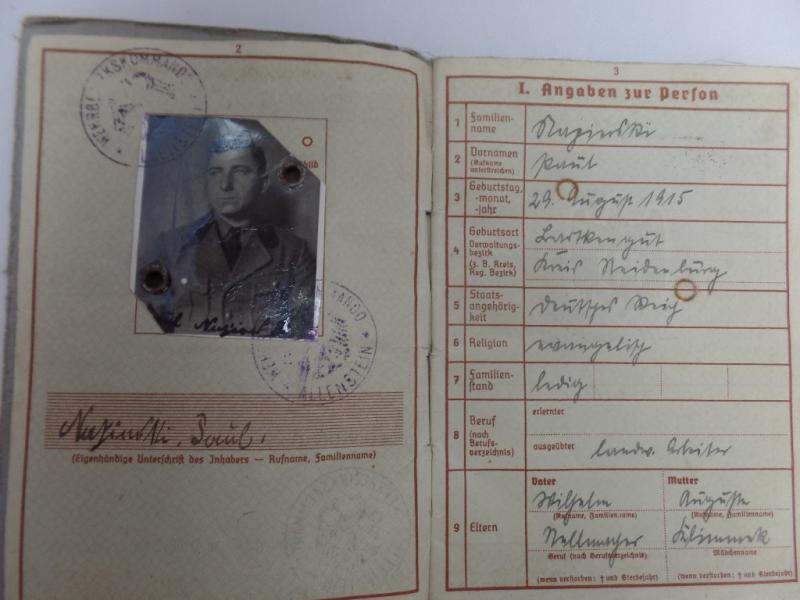 2
WEHRBEZIRKSKOMMANDO
ALLENSTEIN
WEHRBEZIRKSKOMMANDO
ALLENSTEIN
Paul
(Eigenhändige Unterschrift des Inhabers — Rufname, Familienname)
3
I. Angaben zur Person
1 Familien-
name
2 Vornamen
(Rufname
unterstreichen)
Paul
3 Geburtstag,
-monat,
-jahr
29. August 1915
4 Geburtsort
Verwaltungs-
bezirk
(z. B. Kreis,
Reg. Bezirk)
Bartkengut
Kreis Neidenburg
5 Staats-
angehörig-
keit
Deutsches Reich
6 Religion
evangelisch
7 Familien-
stand
ledig
8 Beruf
(nach
Berufs-
verzeichnis)
erlernter
ausgeübter landw. Arbeiter
9 Eltern
Vater Mutter
Wilhelm Auguste
(Rufname, Familienname) (Rufname, Familienname)
Beruf (nach Berufsverzeichnis) Mädchenname
(wenn verstorben: † und Sterbejahr) (wenn verstorben: † und Sterbejahr)